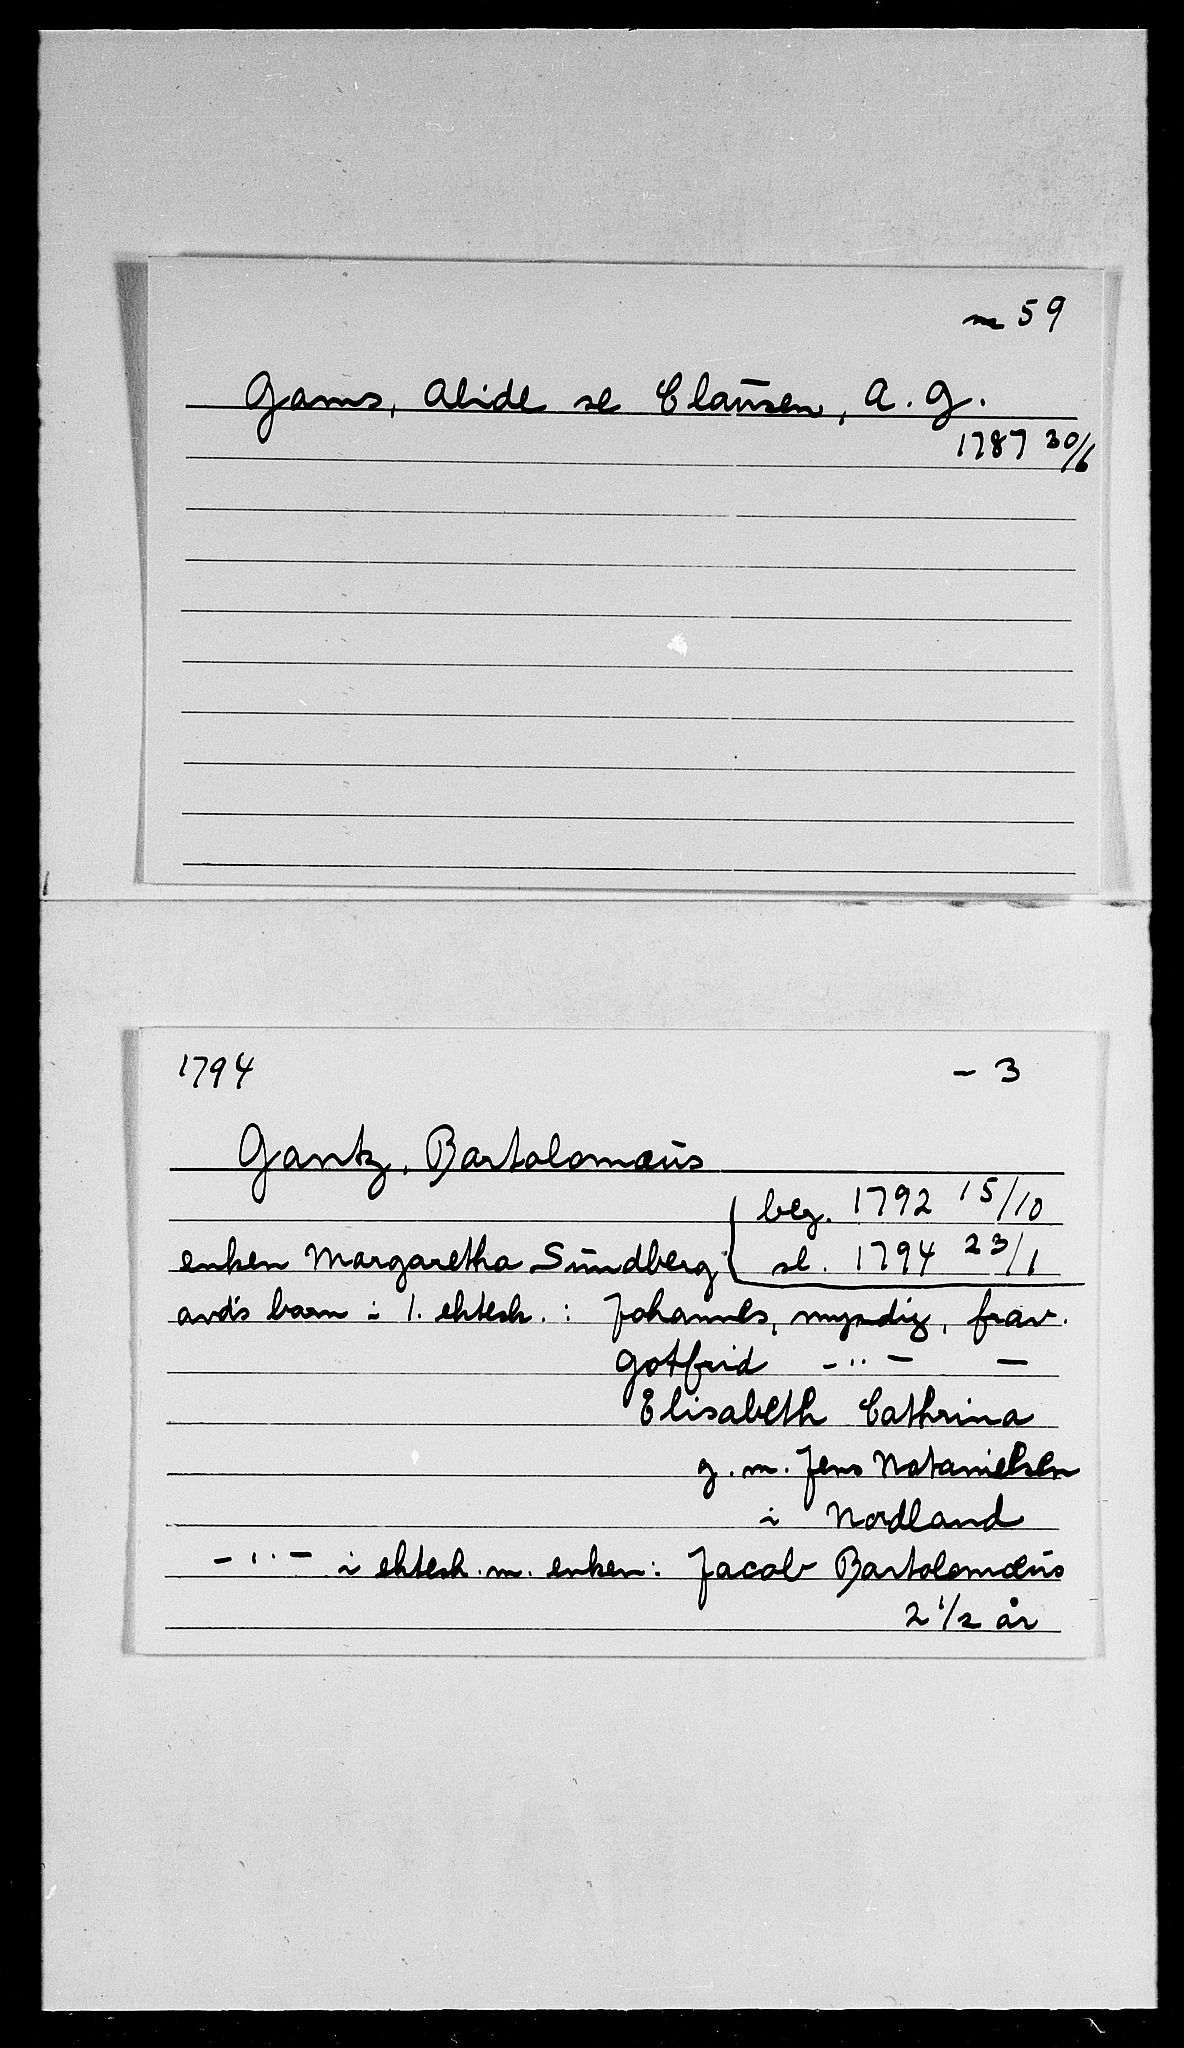 59
Gams, Alide se Clausen, A. G.
1787 30/6
1794 - 3
Gantz, Bartolomæus
beg. 1792 15/10
enken Margaretha Sundberg sl. 1794 23/1
avd's barn i 1. ektesk. : Johannes, myndig, frav.
Gotfrid -"- -
Elisabeth Cathrina
g. m. Jens Natanielsen
i Nordland
-"- i ektesk. m. enken: Jacob Bartolomæus
2 1/2 år